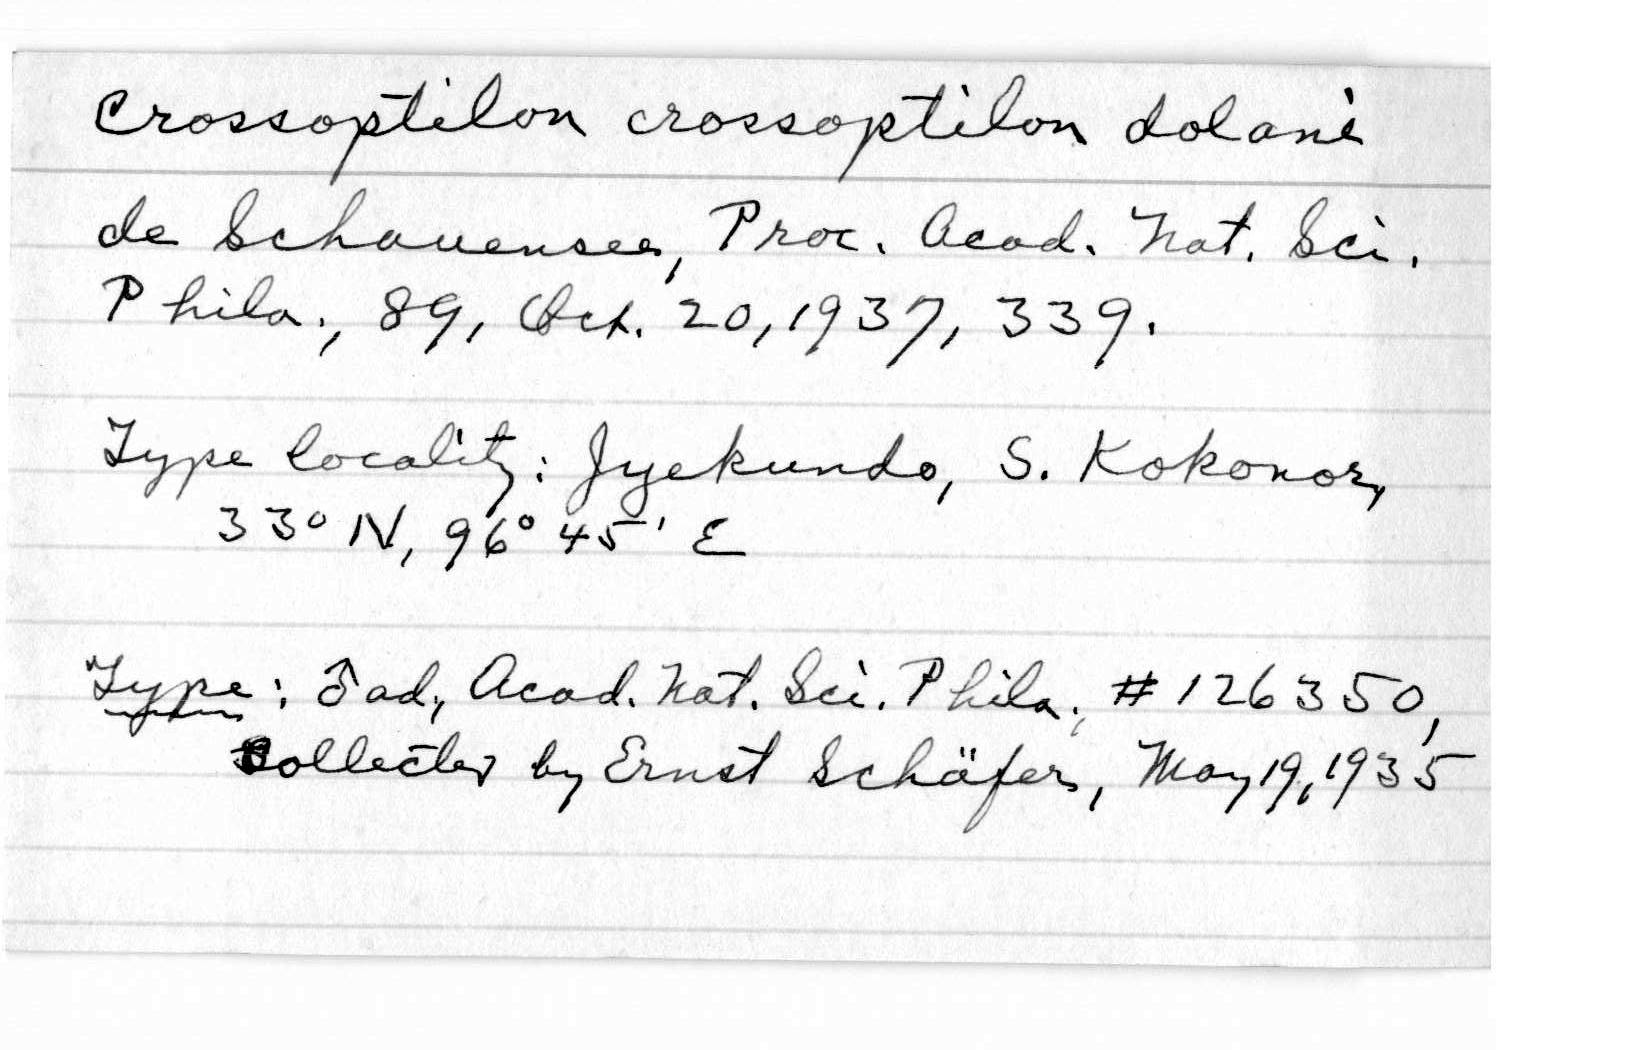 Crossoptilon crossoptilon dolani
de Schauensee, Proc. Acad. Nat. Sci.
Phila., 89, Oct. 20, 1937, 339.
Type locality: Jyekundo, S. Kokonor,
33° N, 96° 45' E
Type: ♂ ad., Acad. Nat. Sci. Phila., # 126350,
Collected by Ernst Schäfer, May 19, 1935